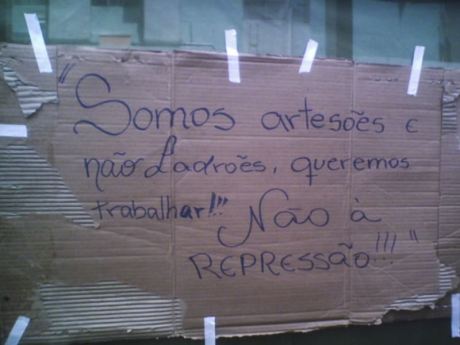 "Somos artesões e
não Ladroẽs, queremos
trabalhar!!! Não à
REPRESSÃO!!!"